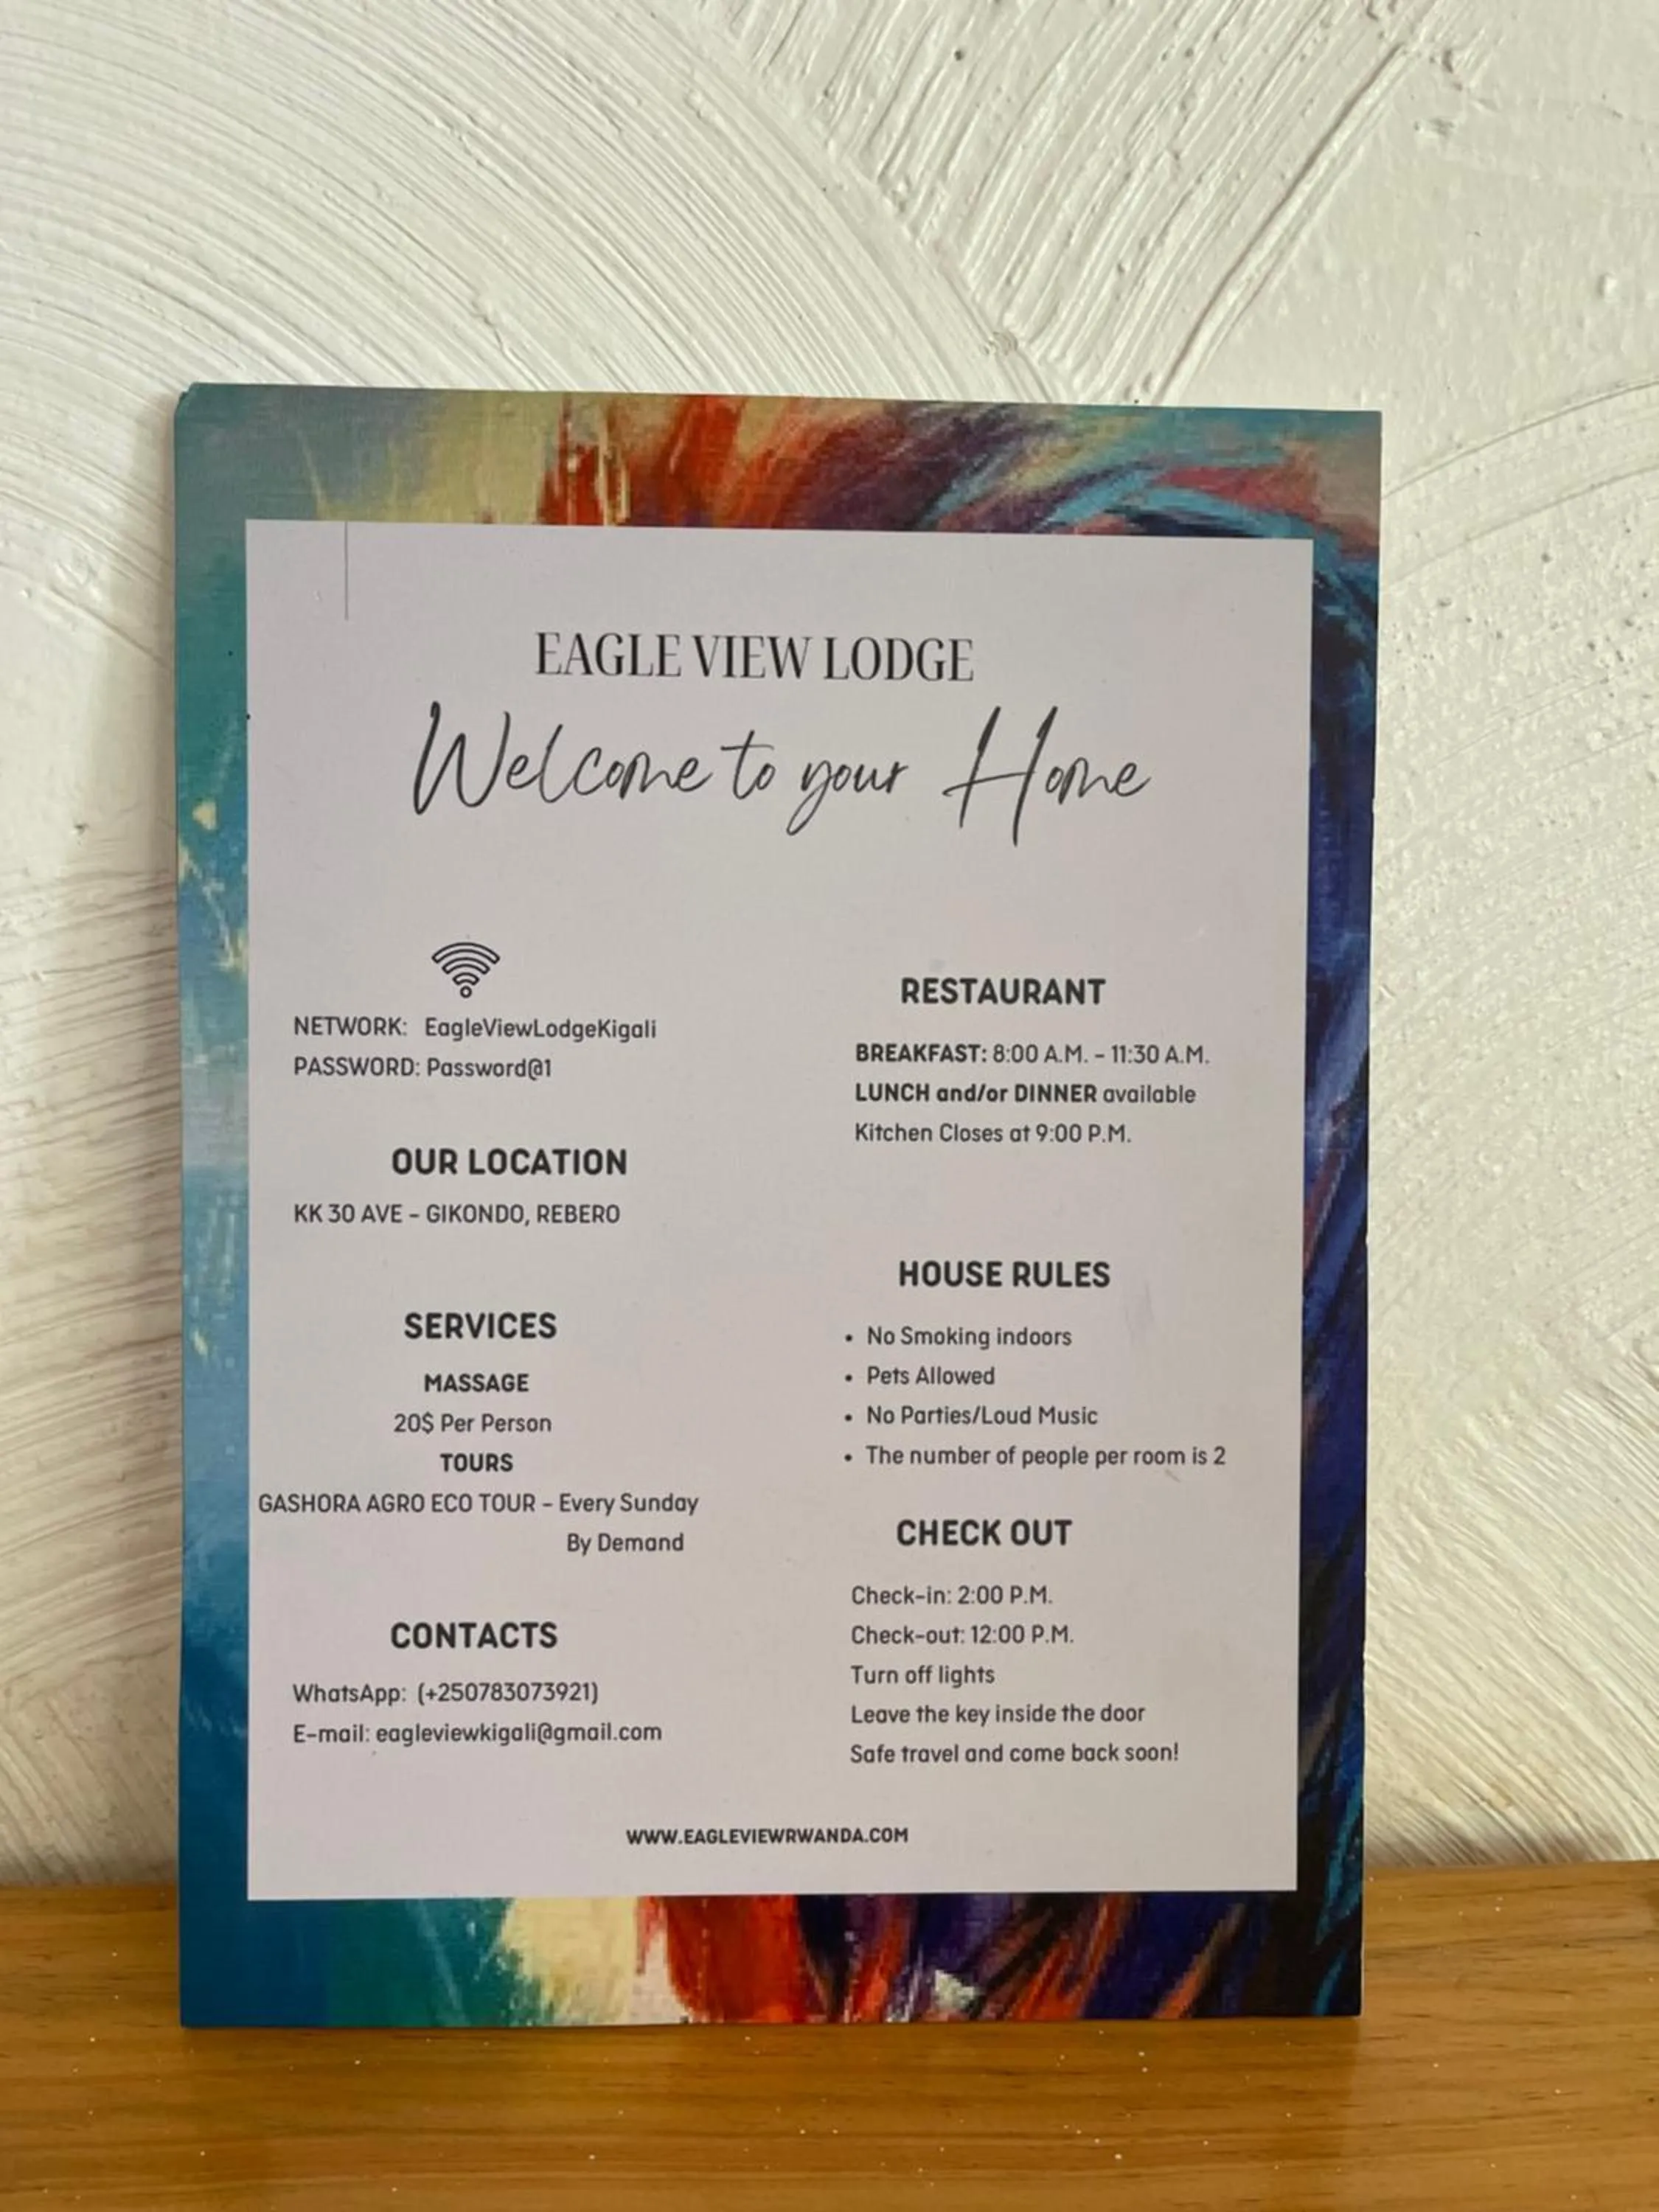 EAGLE VIEW LODGE
Welcome to your Home
NETWORK: EagleViewLodgeKigali
PASSWORD: Password@1
OUR LOCATION
KK 30 AVE - GIKONDO, REBERO
SERVICES
MASSAGE
20$ Per Person
TOURS
GASHORA AGRO ECO TOUR - Every Sunday
By Demand
CONTACTS
WhatsApp: (+250783073921)
E-mail: eagleviewkigali@gmail.com
RESTAURANT
BREAKFAST: 8:00 A.M. - 11:30 A.M.
LUNCH and/or DINNER available
Kitchen Closes at 9:00 P.M.
HOUSE RULES
• No Smoking indoors
• Pets Allowed
• No Parties/Loud Music
• The number of people per room is 2
CHECK OUT
Check-in: 2:00 P.M.
Check-out: 12:00 P.M.
Turn off lights
Leave the key inside the door
Safe travel and come back soon!
WWW.EAGLEVIEWRWANDA.COM